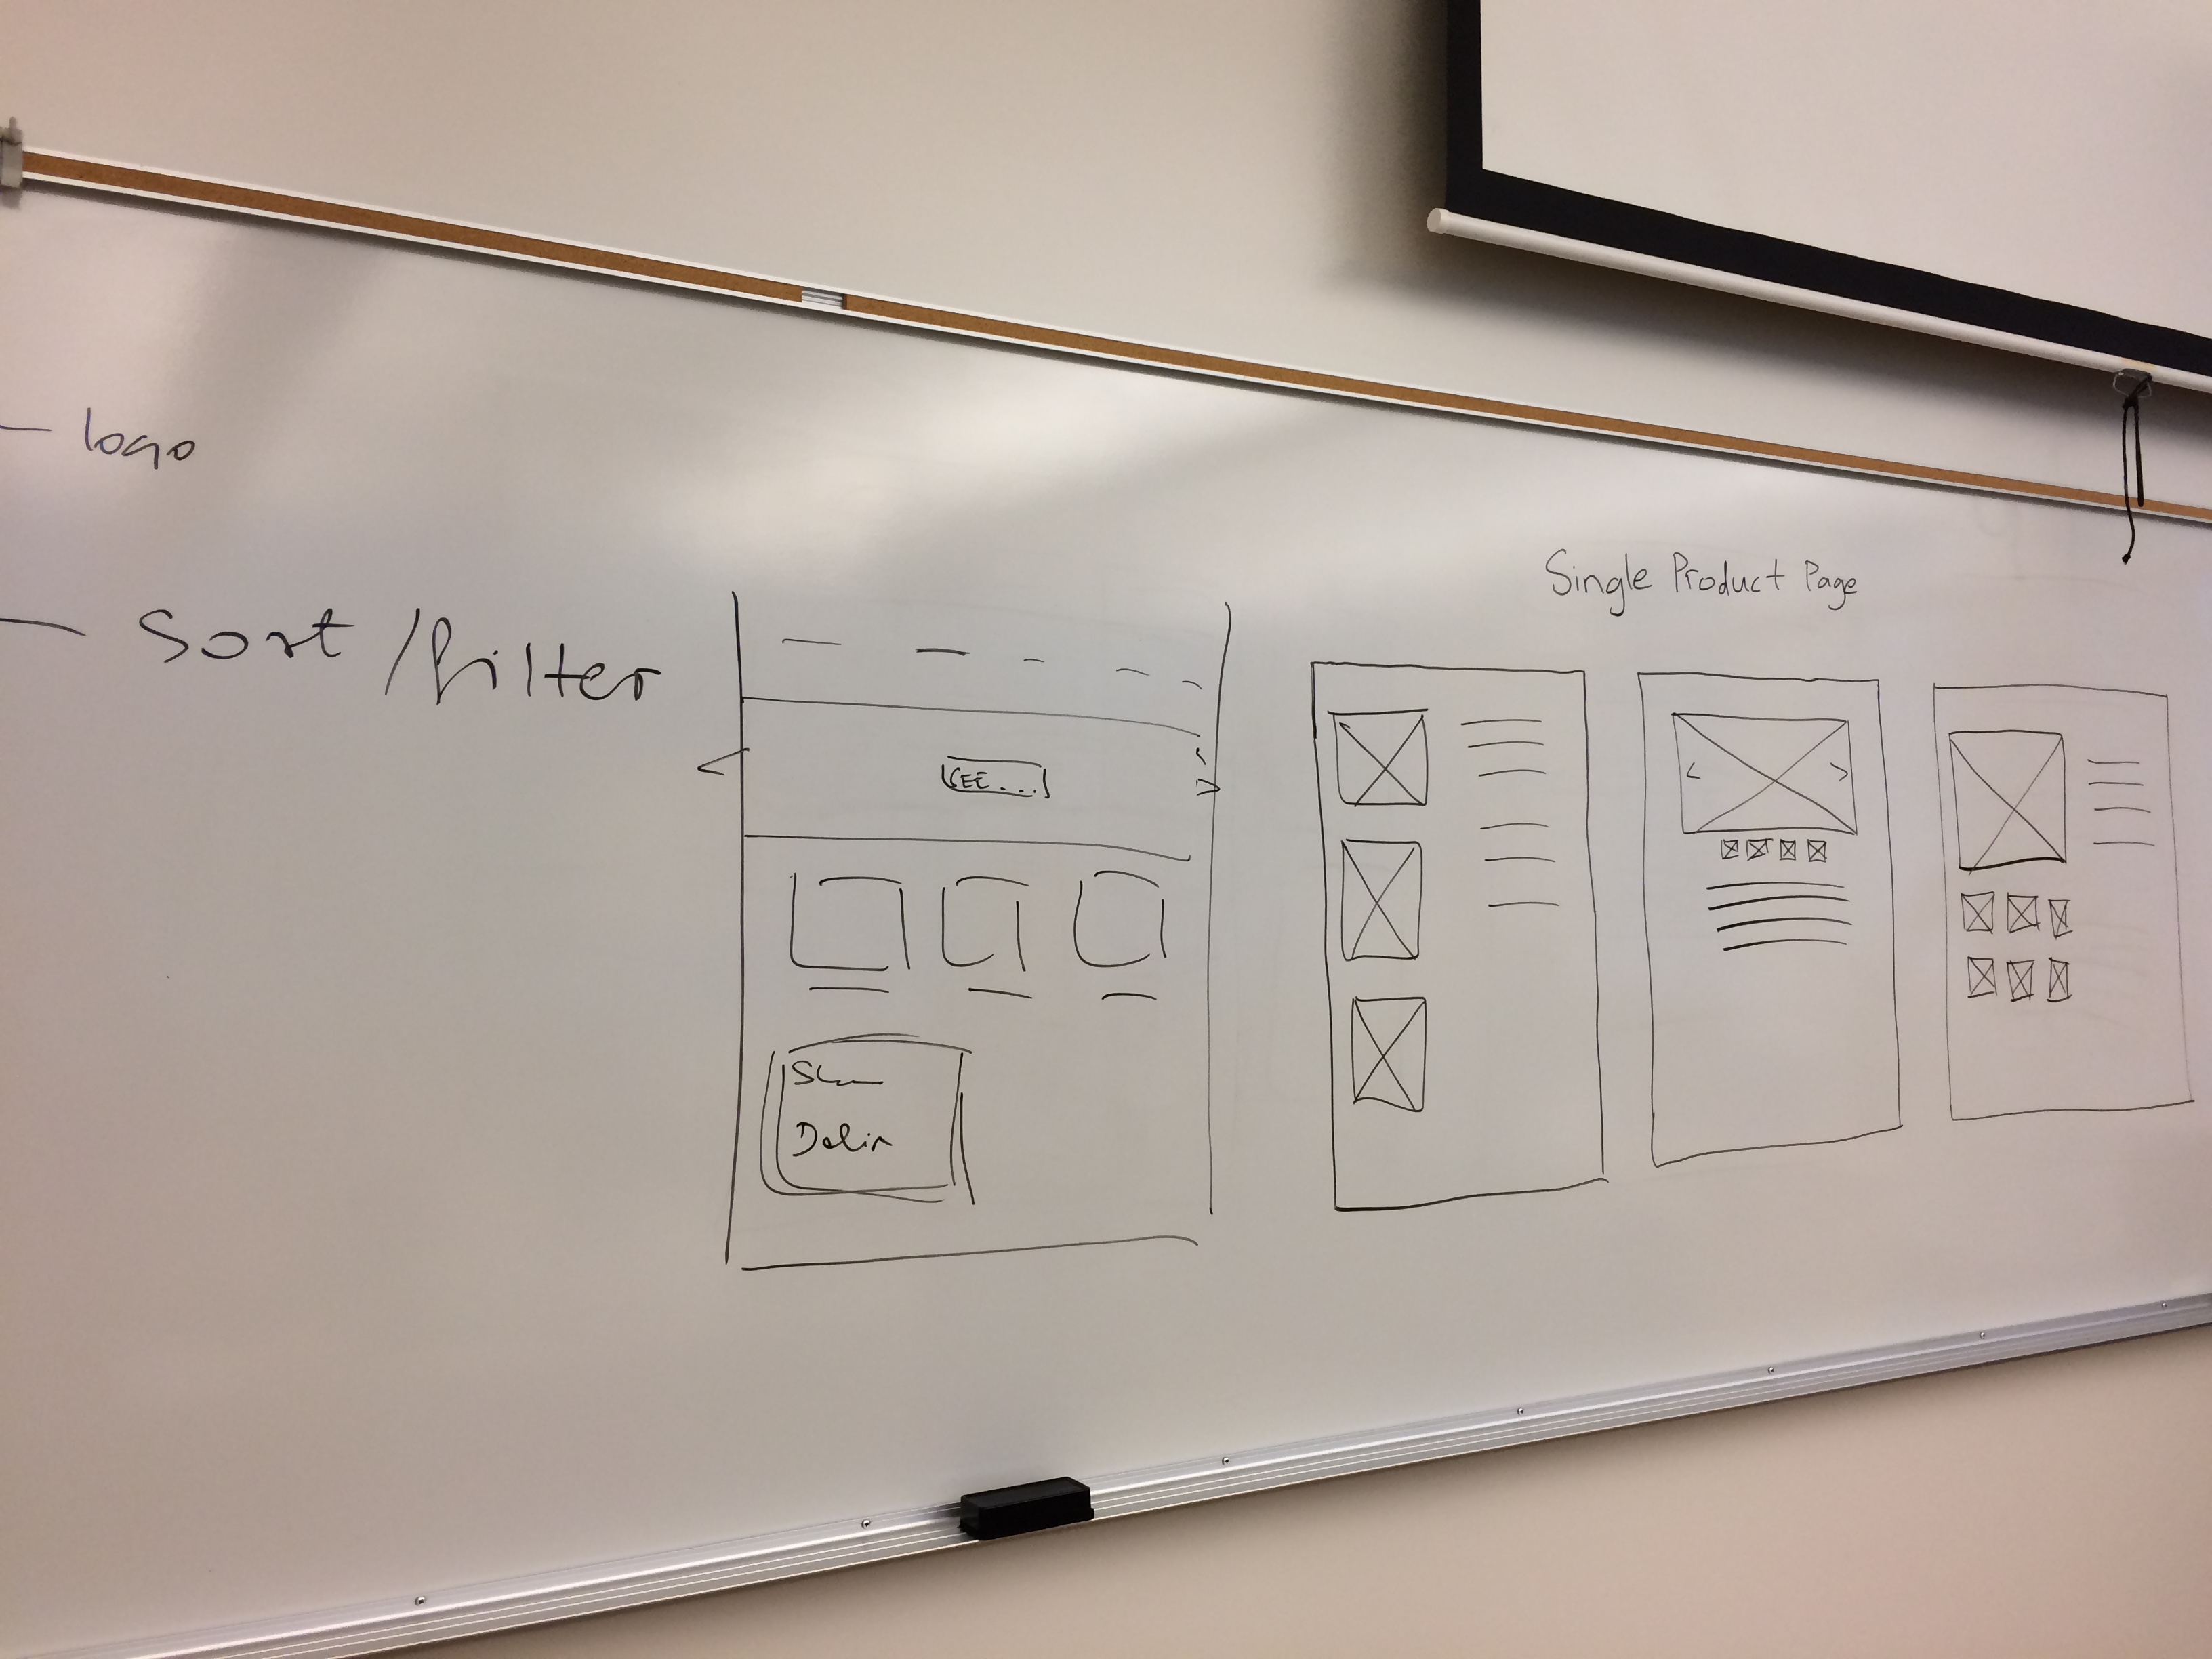 - logo
- Sort/filter
SEE...
Single Product Page